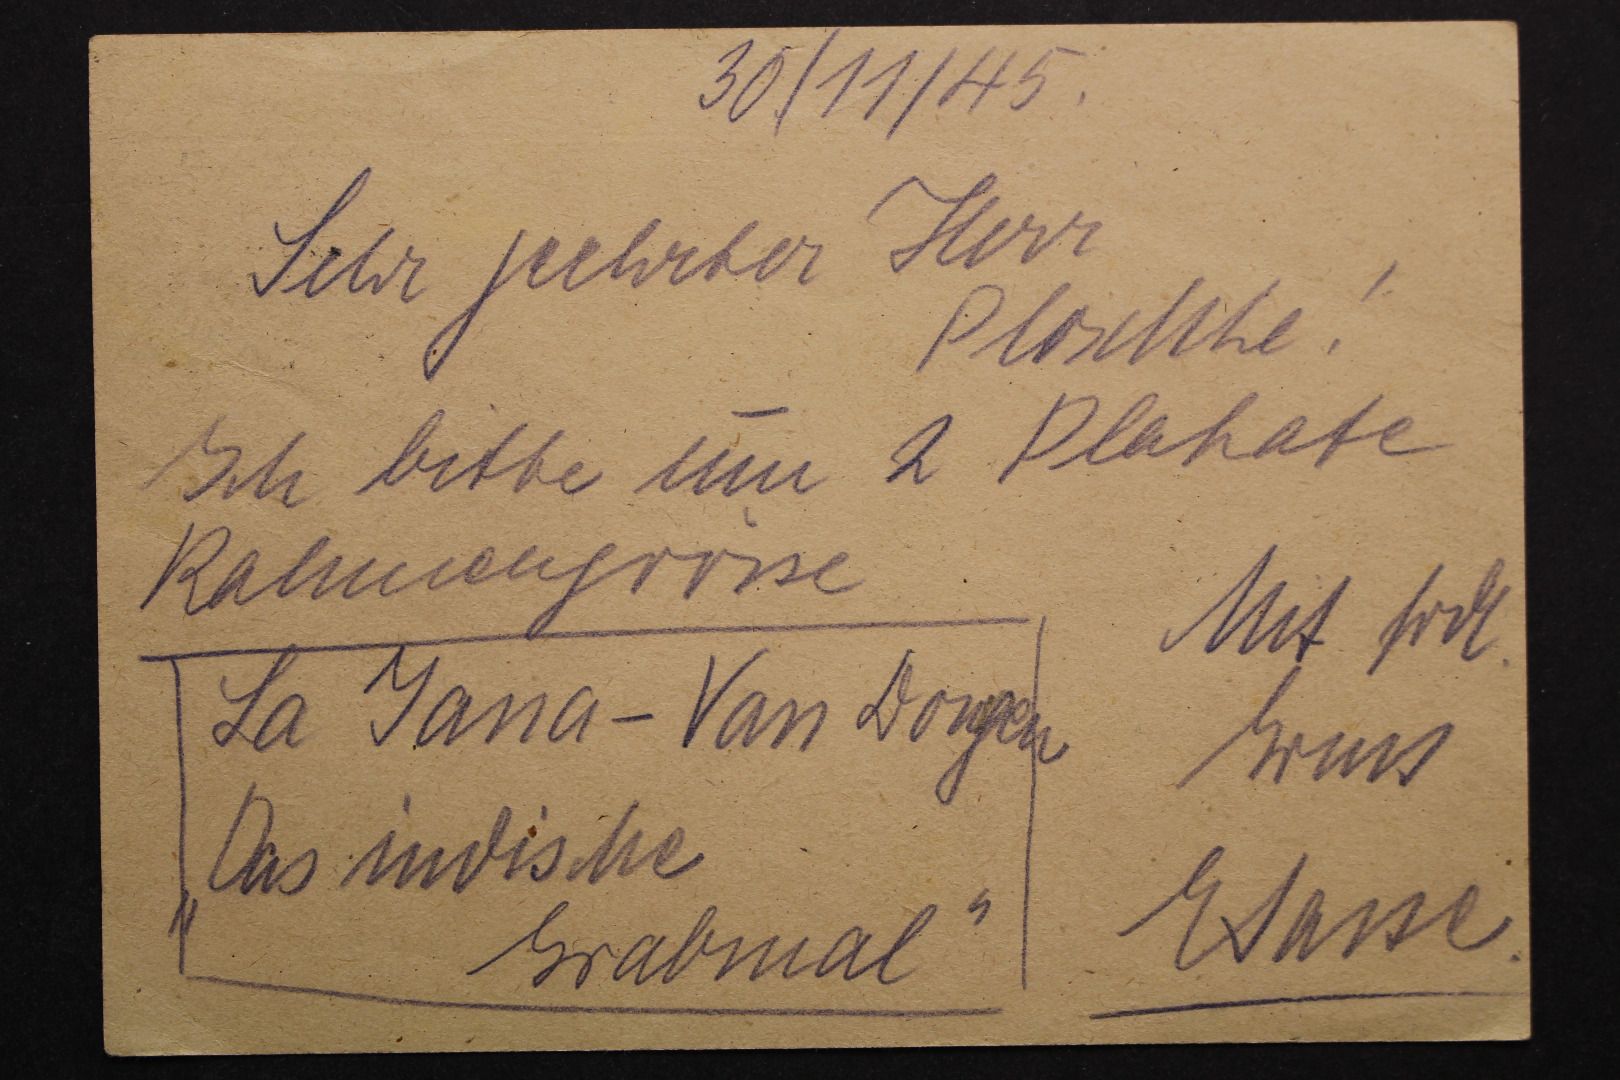 30/11/45.
Sehr geehrter Herr
Ploschke!
Ich bitte um 2 Plakate
Rahmengrösse
La Jana - Van Dongen
Das indische
„Grabmal"
Mit frdl.
Gruss
E Sasse.